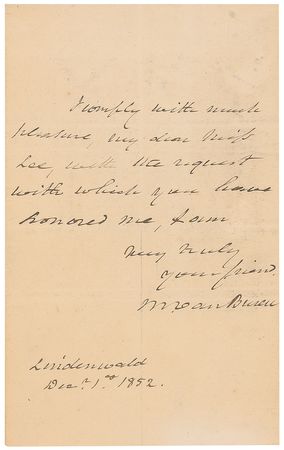 I comply with much
pleasure, my dear Miss
Lee, with the request
with which you have
honored me, & am
very truly
your friend
M Van Buren
Lindenwald
Dec. 1st 1852.